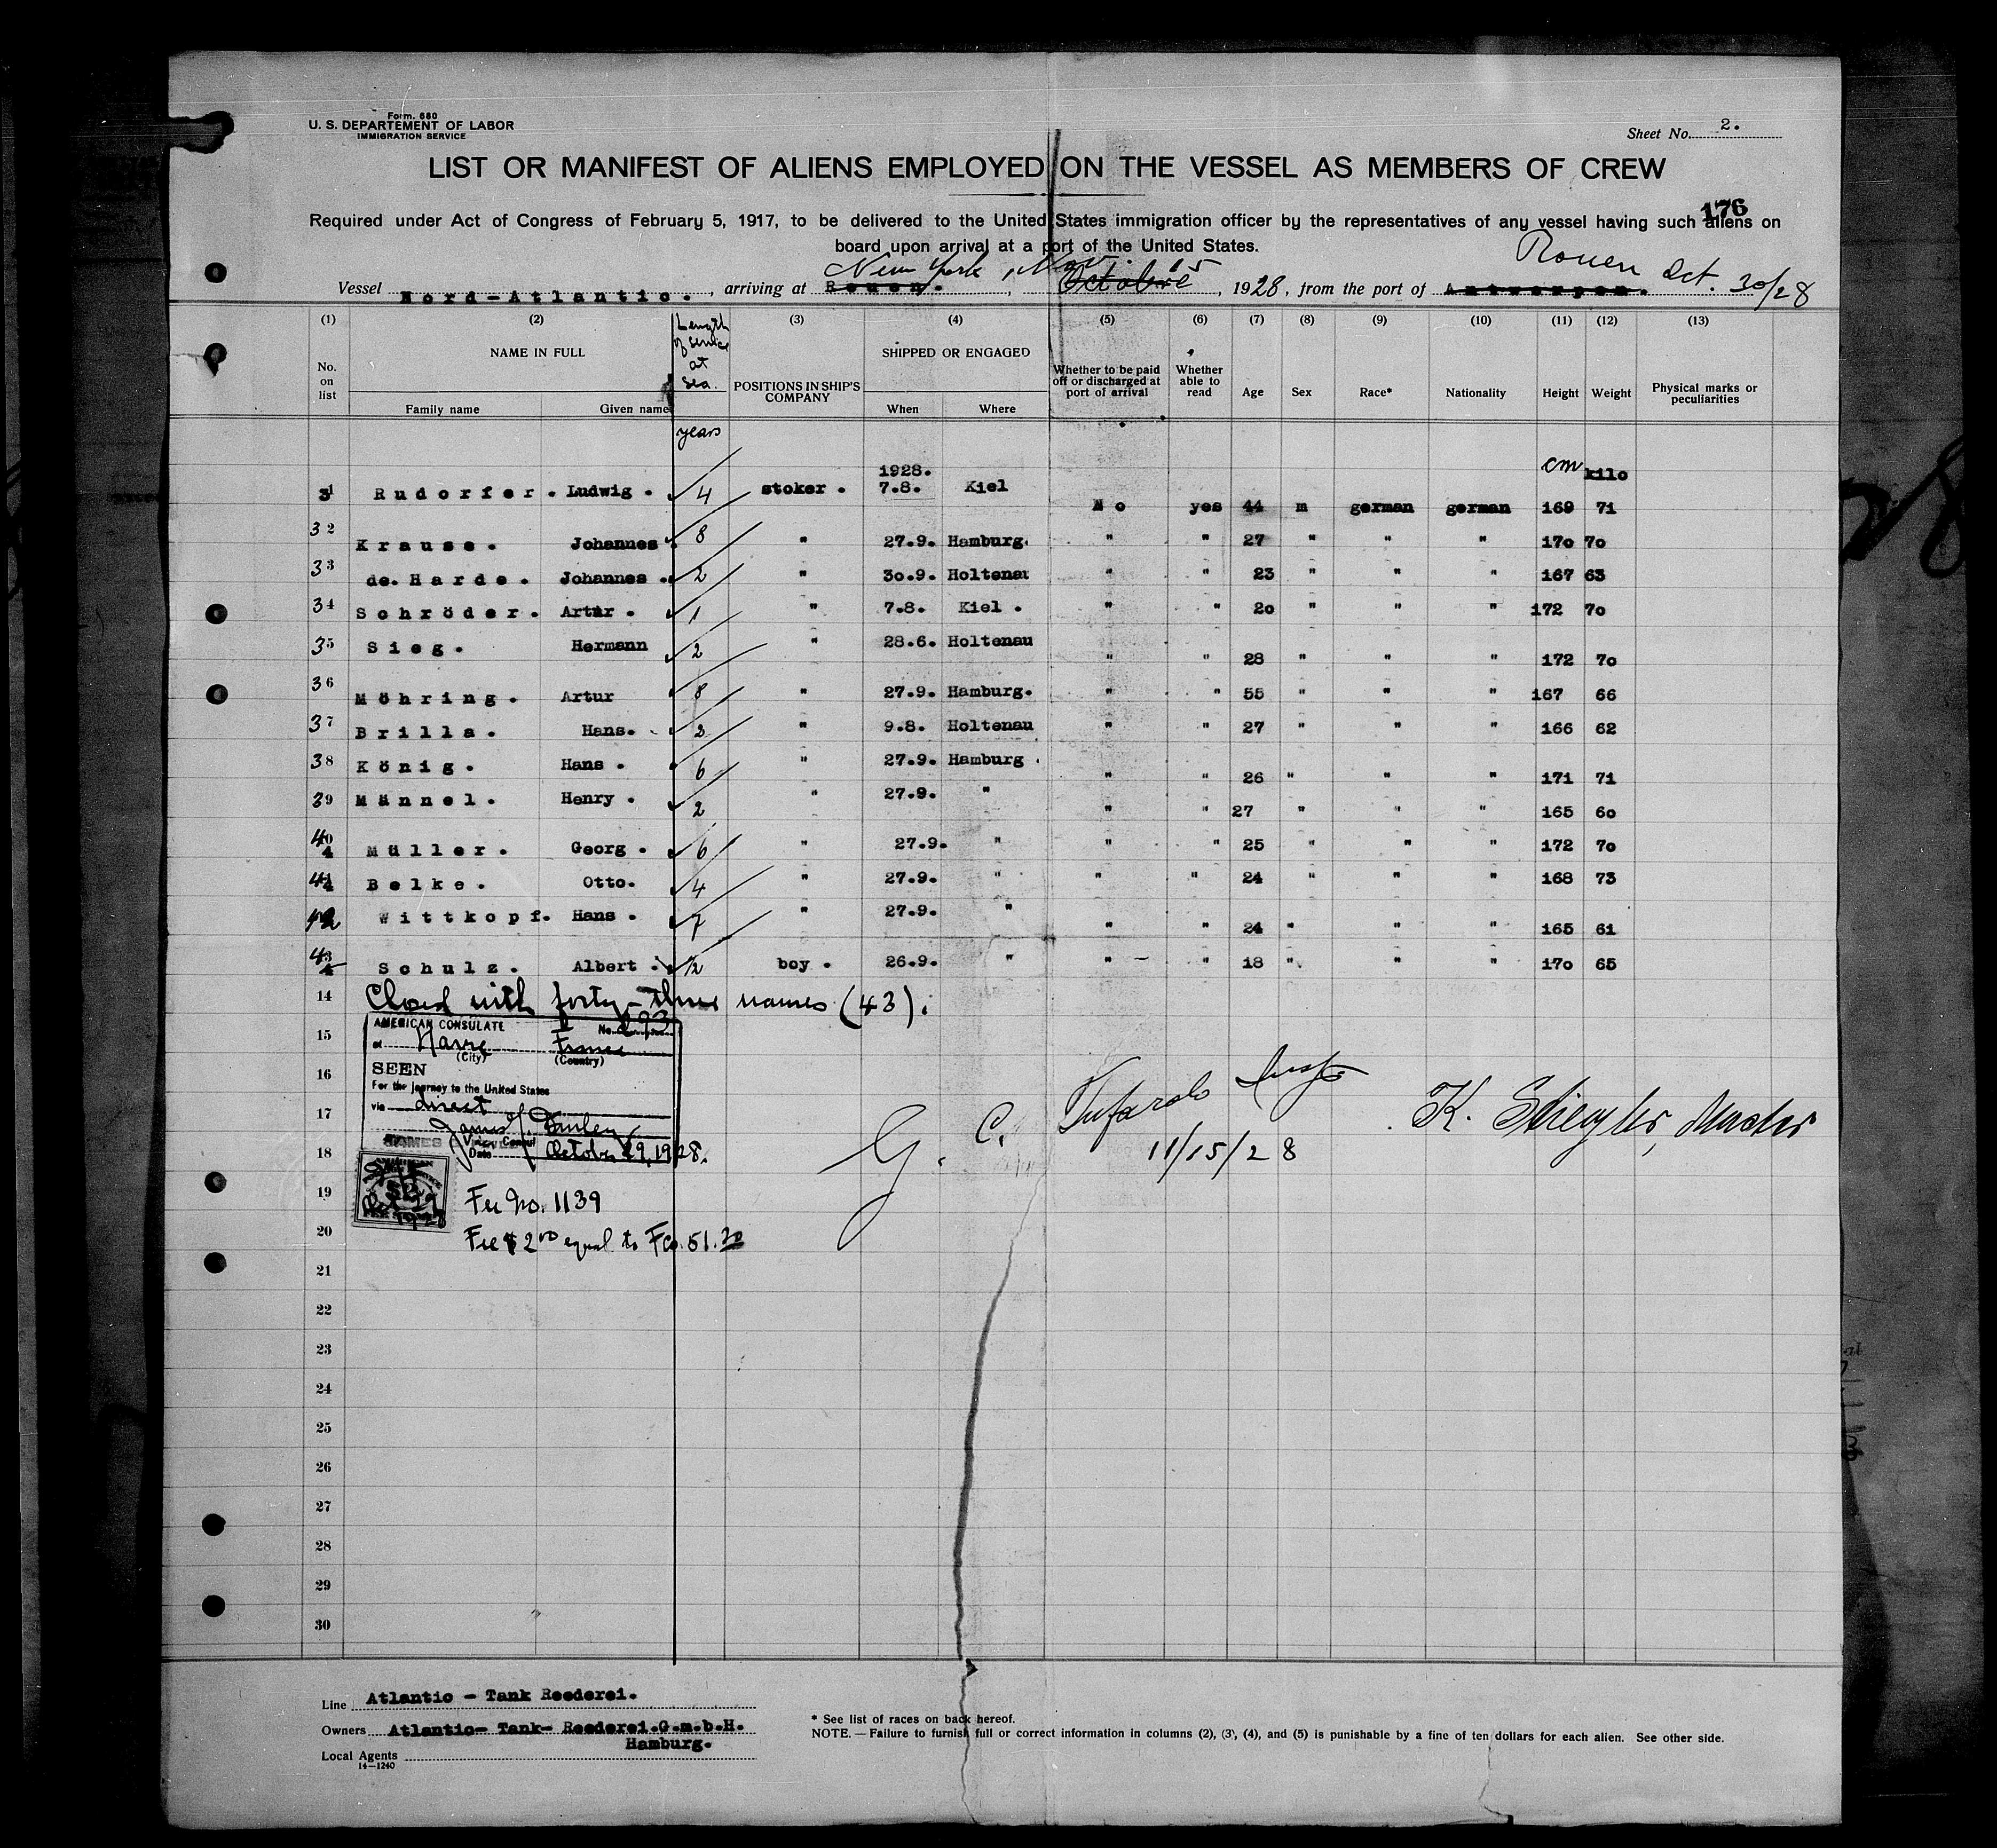 Form. 680
U. S. DEPARTEMENT OF LABOR
IMMIGRATION SERVICE
Sheet No. 2.
LIST OR MANIFEST OF ALIENS EMPLOYED ON THE VESSEL AS MEMBERS OF CREW
176
Required under Act of Congress of February 5, 1917, to be delivered to the United States immigration officer by the representatives of any vessel having such aliens on
board upon arrival at a port of the United States.
New York, Nov. 15 Rouen Oct. 30/28
Vessel Nord-Atlantic. , arriving at Rouen. , Octobre , 1928, from the port of Antwerpen.
(1) (2) Length of service at sea. (3) (4) (5) (6) (7) (8) (9) (10) (11) (12) (13)
No. on list NAME IN FULL Family name Given name POSITIONS IN SHIP'S COMPANY SHIPPED OR ENGAGED When Where Whether to be paid off or discharged at port of arrival Whether able to read Age Sex Race* Nationality Height Weight Physical marks or peculiarities
years
1928. cm kilo
31 Rudorfer. Ludwig. 4 stoker. 7.8. Kiel No yes 44 m german german 169 71
32 Krause. Johannes. 8 " 27.9. Hamburg. " " 27 " " " 170 70
33 de. Harde. Johannes. 2 " 30.9. Holtenau " " 23 " " " 167 63
34 Schröder. Artur. 1 " 7.8. Kiel. " " 20 " " " 172 70
35 Sieg. Hermann 2 " 28.6. Holtenau " " 28 " " " 172 70
36 Möhring. Artur 8 " 27.9. Hamburg. " " 55 " " " 167 66
37 Brilla. Hans. 2 " 9.8. Holtenau " " 27 " " " 166 62
38 König. Hans. 6 " 27.9. Hamburg. " " 26 " " " 171 71
39 Männel. Henry. 2 " 27.9. " " " 27 " " " 165 60
40 Müller. Georg. 6 " 27.9. " " " 25 " " " 172 70
41 Belke. Otto. 4 " 27.9. " " " 24 " " " 168 73
42 Wittkopf. Hans. 7 " 27.9. " " " 24 " " " 165 61
43 Schulz. Albert. 1/2 boy. 26.9. " " " 18 " " " 170 65
14 Closed with forty-three names (43).
AMERICAN CONSULATE No.
15 at Havre France
(City) (Country)
16 SEEN
For the journey to the United States
17 via direct
Vice Consul
18 Date October 29, 1928.
G. C. Tufarolo Insp
11/15/28
K. Stiegler, Master
19 Fee No. 1139
20 Fee $2.00 equal to Fcs. 51.20
21
22
23
24
25
26
27
28
29
30
Line Atlantic - Tank Reederei.
Owners Atlantic- Tank- Reederei.G.m.b.H.
Hamburg.
Local Agents
14—1240
* See list of races on back hereof.
NOTE. — Failure to furnish full or correct information in columns (2), (3), (4), and (5) is punishable by a fine of ten dollars for each alien. See other side.